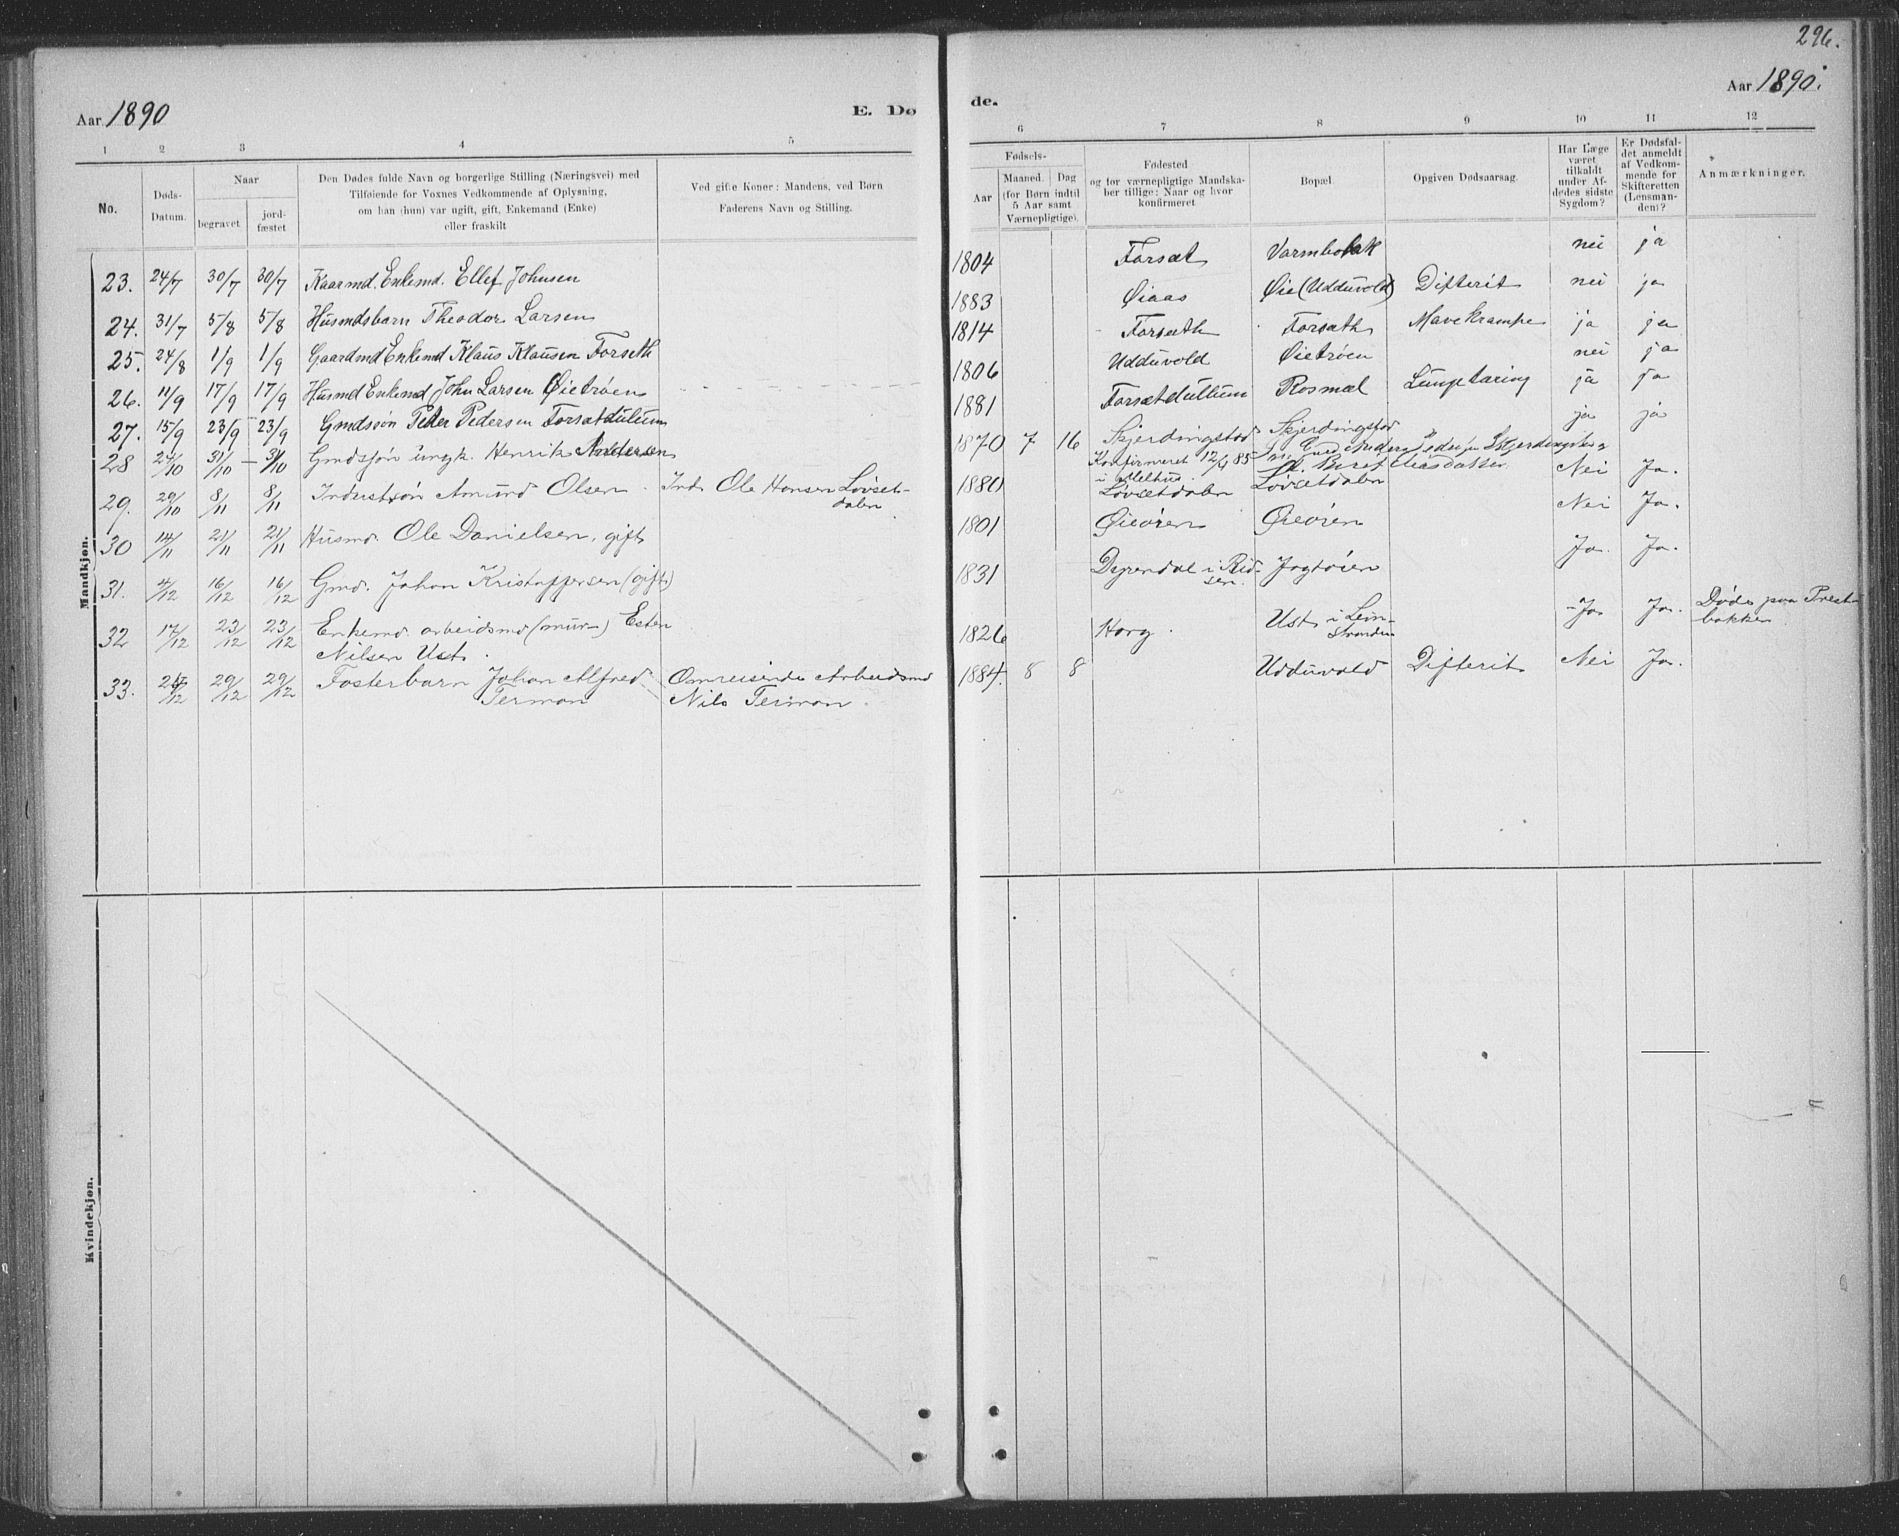 296.
Aar 1890
E. Dø
de.
Aar 1890.
1 2 3 4 5
6 7 8 9 10 11 12
No.
Døds-
Datum.
Naar
begravet
jord-
fæstet
Den Dødes fulde Navn og borgerlige Stilling (Næringsvei) med
Tilføiende for Voxnes Vedkommende af Oplysning,
om han (hun) var ugift, gift, Enkemand (Enke)
eller fraskilt
Ved gifte Koner: Mandens, ved Børn
Faderens Navn og Stilling.
Fødsels-
Aar
Maaned.
Dag
(for Børn indtil
5 Aar samt
Værnepligtige).
Fødested
og for værnepligtige Mandska-
ber tillige: Naar og hvor
konfirmeret
Bopæl.
Opgiven Dødsaarsag.
Har Læge
været
tilkaldt
under Af-
dødes sidste
Sygdom?
Er Dødsfal-
det anmeldt
af Vedkom-
mende for
Skifteretten
(Lensman-
den)?
Anmærkninger.
Mandkjøn.
23. 24/7 30/7 30/7 Kaarmd. Enkemd. Ellef Johnsen
1804 Forsæt nei ja
24. 31/7 5/8 5/8 Husmdsbarn Theodor Larsen
1883 Øiaas Øie (Udduvold) Difterit nei ja
25. 24/8 1/9 1/9 Gaardmd Enkemd Klaus Klausen Forseth
1814 Forsæth Forsæth Mavekrampe ja ja
26. 11/9 17/9 17/9 Husmd Enkemd John Larsen Øietrøen
1806 Udduvold Øietrøen nei ja
27. 15/9 23/9 23/9 Gmdssøn Peder Pedersen Forsætdullum
1881 Forsætdullum Rosmæl Lungetæring ja ja
28 27/10 31/10 31/10 Gmdssøn ungk. Henrik Andersen
1870 7 16 Skjerdingstad Skjerdingstad ja ja
Konfirmeret 12/4 85
i Melhus
29. 29/10 8/11 8/11 Inderstsøn Amund Olsen Ind. Ole Hansen Løvset-
dalen
1880 Løvsetdalen Løvsetdalen Nei Ja.
30 14/11 21/11 21/11 Husmd. Ole Danielsen, gift
1801 Øieøren Øieøren Nei Ja.
31. 4/12 16/12 16/12 Gmd. Johan Kristoffersen (gift)
1831 Dyrendal i Rid-
sen. Jagtøien Ja. Ja.
32 17/12 23/12 23/12 Enkemd. arbeidsmd (mur-) Esten
Nilsen Ust.
1826 Horg. Ust i Lein-
stranden Ja Ja. Døde paa Prest-
bakken
33. 29/12 29/12 Fosterbarn Johan Alfred
Terman
Omreisende Arbeidsmd
Nils Terman.
1884. 8 8 Udduvold Difterit Nei Ja.
Kvindekjøn.